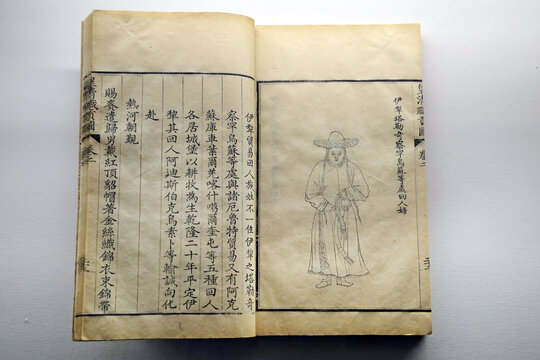 皇清職貢圖 卷二
伊犂塔勒奇察罕烏蘇等處回人婦
伊犂貿易回人族姓不一住伊犂之塔勒奇
察罕烏蘇等處與諸厄魯特貿易又有阿克
蘇庫車葉爾羌喀什噶爾奎屯等五種回人
各居城堡以耕牧為生乾隆二十年平定伊
犂其回人阿迪斯伯克烏素卜等輸誠向化
赴
熱河朝覲
賜賚遣歸男戴紅頂貂帽著金絲織錦衣束錦帶
皇清職貢圖 卷二